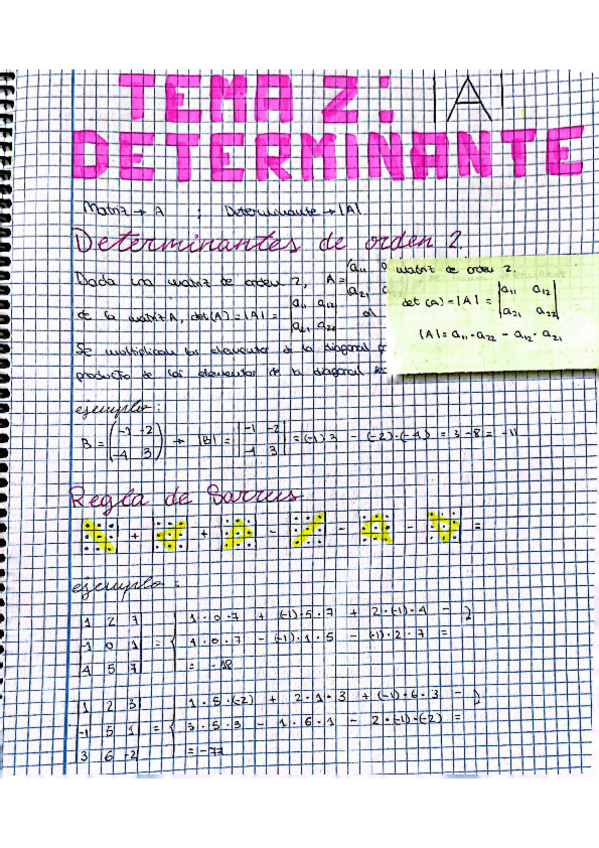 TEMA 2: |A|
DETERMINANTE
Matriz → A ; Determinante → |A|
Determinantes de orden 2.
Dada una matriz de orden 2, A = (a₁₁
a₂₁
de la matriz A, det(A) = |A| = |a₁₁ a₁₂| el
|a₂₁ a₂₂|
Se multiplican los elementos de la diagonal
producto de los elementos de la diagonal
matriz de orden 2.
det (A) = |A| = |a₁₁ a₁₂|
|a₂₁ a₂₂|
|A| = a₁₁ · a₂₂ - a₁₂ · a₂₁
ejemplo:
B = (-1 -2) → |B| = |-1 -2| = (-1)·3 - (-2)·(-4) = -3 - 8 = -11
(-4 3) |-4 3|
Regla de Sarrus
+ + - - - =
ejemplo:
|1 2 7| 1 · 0 · 7 + (-1) · 5 · 7 + 2 · (-1) · 4 -
|-1 0 1| = { 4 · 0 · 7 - (-1) · 1 · 5 - (-1) · 2 · 7 =
|4 5 7| = -18
|1 2 3| 1 · 5 · (-2) + 2 · 1 · 3 + (-1) · 6 · 3 -
|-1 5 1| = { 3 · 5 · 3 - 1 · 6 · 1 - 2 · (-1) · (-2) =
|3 6 -2| = -77